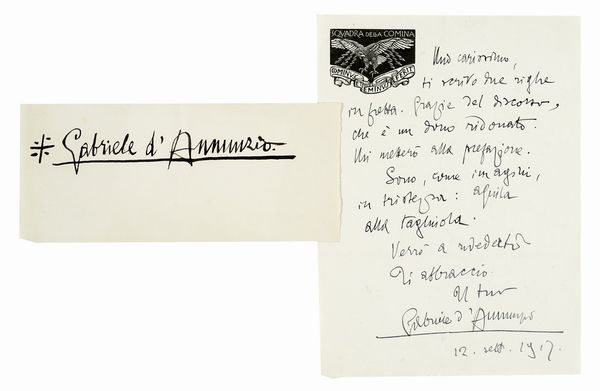 Gabriele d'Annunzio
SQVADRA DELLA COMINA
COMINVS ET EMINVS FERIT
Mio carissimo,
ti scrivo due righe
in fretta. Grazie del discorso,
che è un dono ridonato.
Mi metterò alla prefazione.
Sono, come imagini,
in tristezza: aquila
alla tagliuola.
Verrò a rivederti
Ti abbraccio
Il tuo
Gabriele d'Annunzio
12. sett. 1917.